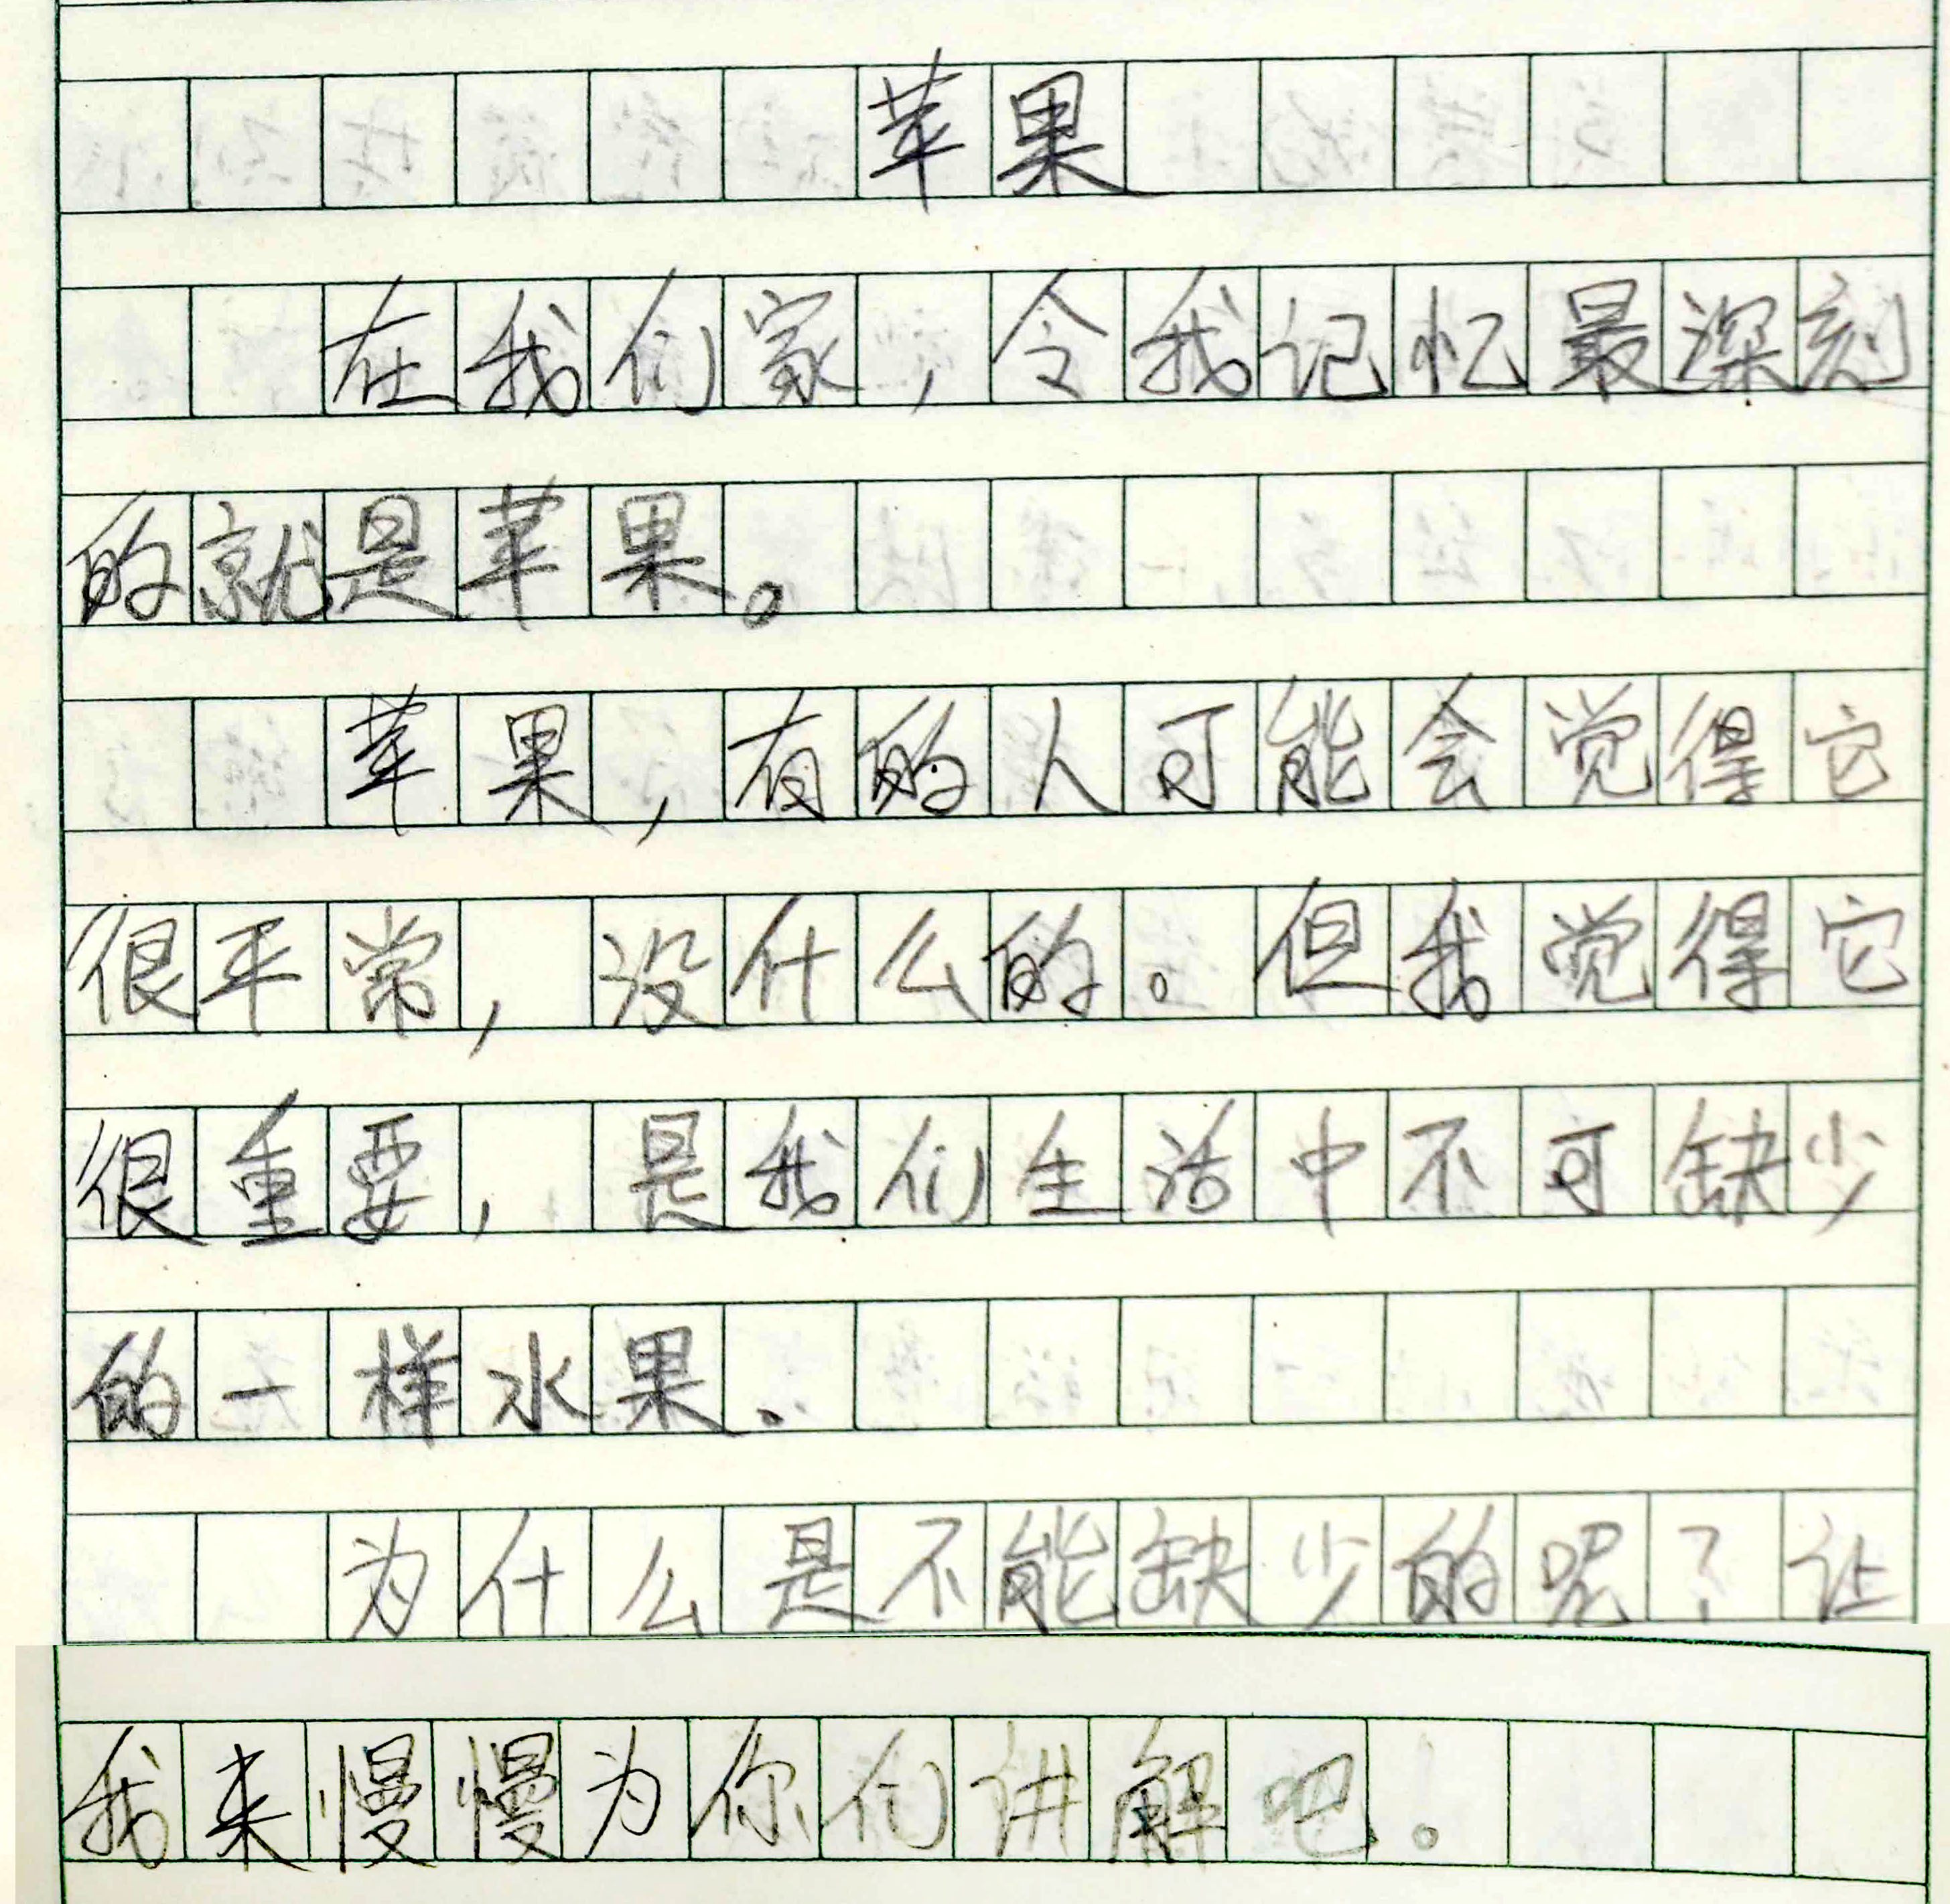 苹果
在我们家，令我记忆最深刻
的就是苹果。
苹果，有的人可能会觉得它
很平常，没什么的。但我觉得它
很重要，是我们生活中不可缺少
的一样水果.
为什么是不能缺少的呢？让
我来慢慢为你们讲解吧。